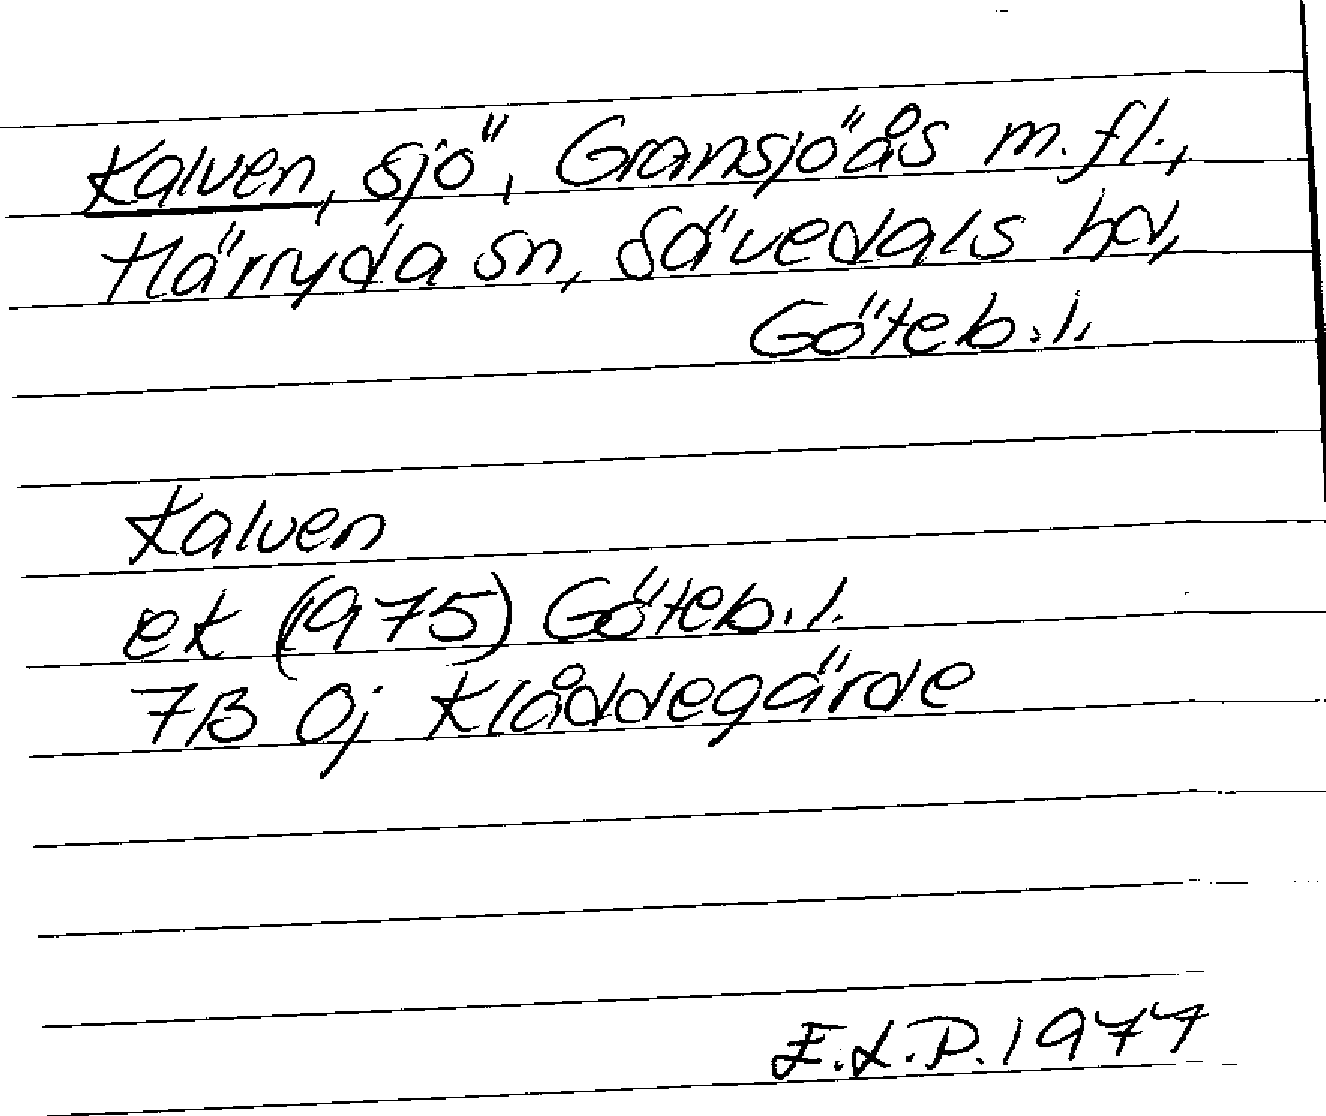 Kalven, sjö, Gransjöås m.fl.,
Härryda sn, Sävedals hd,
Göteb.l.
Kalven
ek (1975) Göteb.l.
7B 0j Klåddegärde
E.L.P. 1977